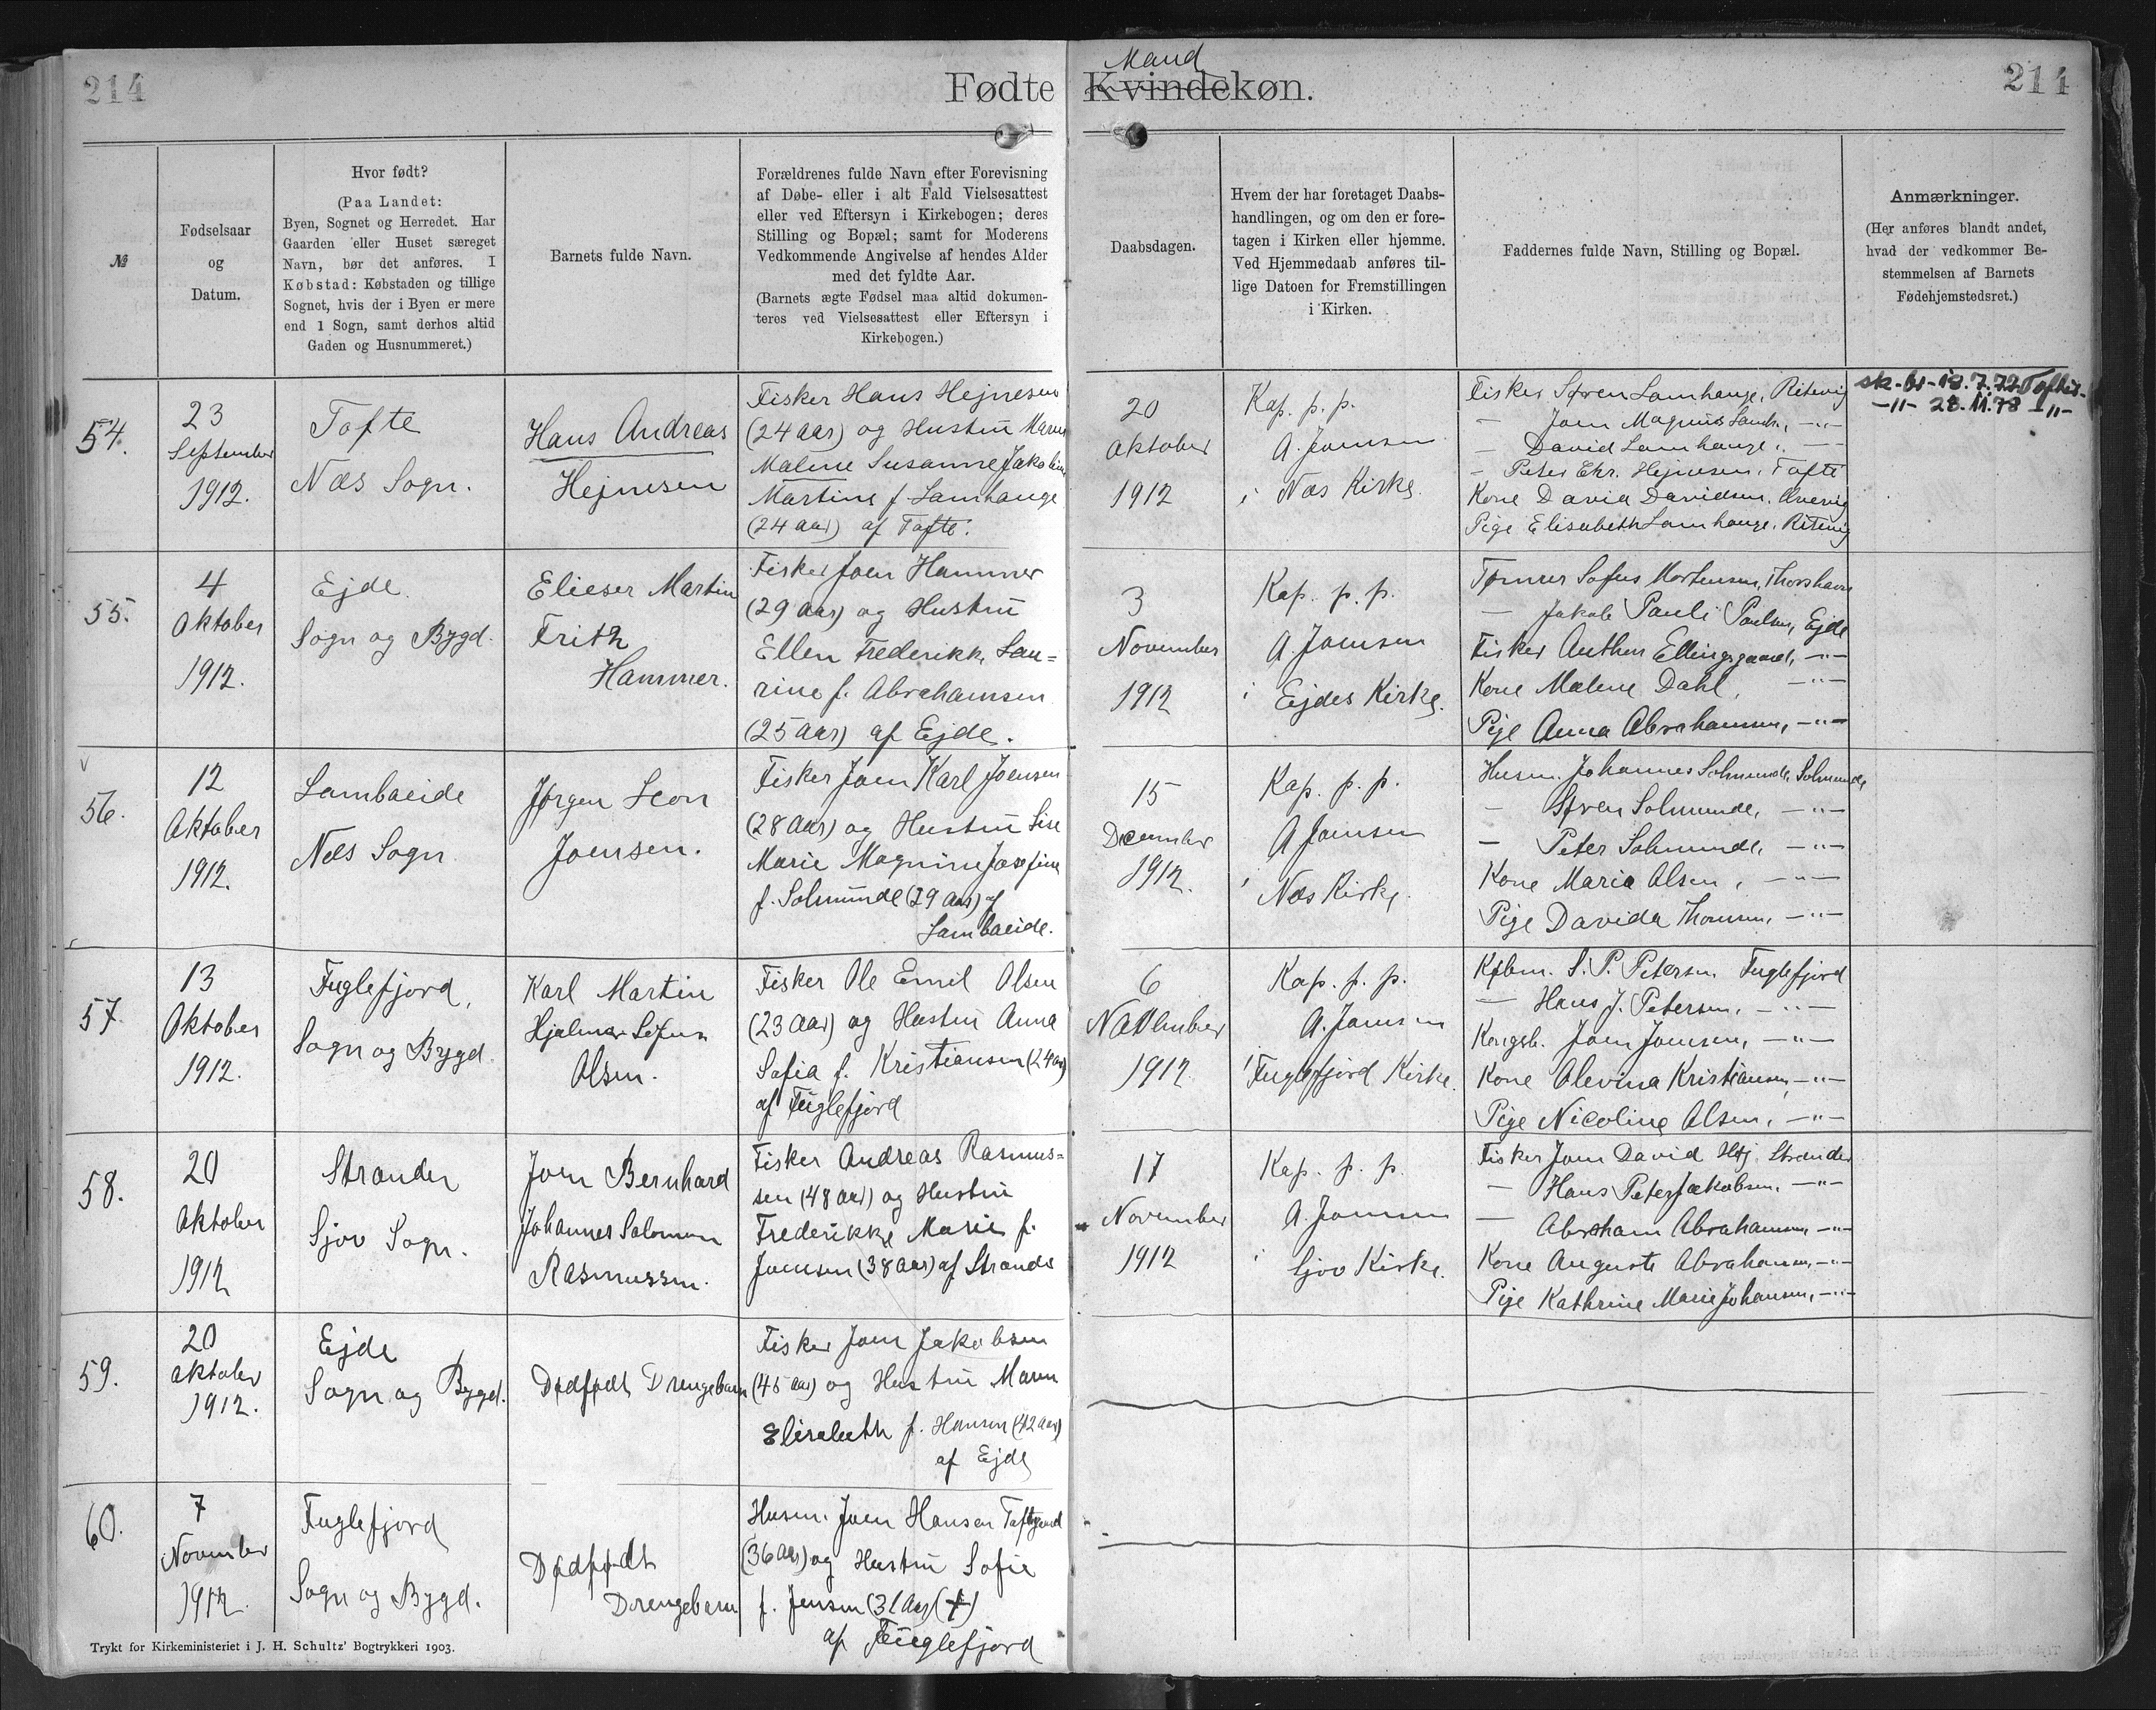 214
Fødte
Mand
Kvindekøn.
214
№
Fødselsaar
og
Datum.
Hvor født?
(Paa Landet:
Byen, Sognet og Herredet. Har
Gaarden eller Huset særeget
Navn, bør det anføres. I
Købstad: Købstaden og tillige
Sognet, hvis der i Byen er mere
end 1 Sogn, samt derhos altid
Gaden og Husnummeret.)
Barnets fulde Navn.
Forældrenes fulde Navn efter Forevisning
af Døbe- eller i alt Fald Vielsesattest
eller ved Eftersyn i Kirkebogen; deres
Stilling og Bopæl; samt for Moderens
Vedkommende Angivelse af hendes Alder
med det fyldte Aar.
(Barnets ægte Fødsel maa altid dokumen-
teres ved Vielsesattest eller Eftersyn i
Kirkebogen.)
Daabsdagen.
Hvem der har foretaget Daabs-
handlingen, og om den er fore-
tagen i Kirken eller hjemme.
Ved Hjemmedaab anføres til-
lige Datoen for Fremstillingen
i Kirken.
Faddernes fulde Navn, Stilling og Bopæl.
Anmærkninger.
(Her anføres blandt andet,
hvad der vedkommer Be-
stemmelsen af Barnets
Fødehjemstedsret.)
54.
23
September
1912.
Tofte
Næs Sogn.
Hans Andreas
Hejnesen
Fisker Hans Hejnesen
(24 aar) og Hustru Maren
Malene Susanne Jakobine
Martine f. Lamhauge
(24 aar) af Tofte.
20
Oktober
1912
Kap. p. p.
A. Joensen
i Næs Kirke.
Fisker Søren Lamhauge, Ritevig
— Joen Magnus Lamh., —"—
— David Lamhauge, —
— Peter Chr. Hejnesen, Tofte
Kone Davia Davidsen,
Pige Elisabeth Lamhauge, Ritevig
sk.-br-18.7.72 Toftir.
-"- 28.11.78 -"-
55.
4
Oktober
1912.
Ejde
Sogn og Bygd.
Elieser Martin
Frith
Hammer.
Fisker Joen Hammer
(29 aar) og Hustru
Ellen Frederikke Lau=
rine f. Abrahamsen
(25 aar) af Ejde.
3
November
1912
Kap. p. p.
A. Joensen
i Ejdes Kirke.
Tømrer Sofus Mortensen, Thorshavn
— Jakob Pauli Poulsen, Ejde
Fisker Anthon Ellingsgaard, —"—
Kone Malene Dahl, —"—
Pige Anna Abrahamsen, —"—
56.
12
Oktober
1912.
Lambaeide
Næs Sogn
Jørgen Leon
Joensen.
Fisker Joen Karl Joensen
(28 aar) og Hustru Lise
Marie Magnine Josefine
f. Solmunde (29 aar) af
Lambaeide.
15
December
1912.
Kap. p. p.
A Joensen
i Næs Kirke.
Husm. Johannes Solmunde, Solmunde
— Søren Solmunde, —"—
— Peter Solmunde, —"—
Kone Maria Olsen, —"—
Pige Davida Thomsen, —"—
57.
13
Oktober
1912.
Fuglefjord,
Sogn og Bygd.
Karl Martin
Hjalmar Sofus
Olsen.
Fisker Ole Emil Olsen
(23 aar) og Hustru Anna
Sofia f. Kristiansen (24 aar)
af Fuglefjord
6
November
1912
Kap. p. p.
A. Joensen
i Fuglefjord Kirke.
Købm. S. P. Petersen, Fuglefjord
— Hans J. Petersen, —"—
Kongsb. Joen Joensen, —"—
Kone Olevina Kristiansen, —"—
Pige Nicoline Olsen, —"—
58.
20
Oktober
1912
Strender
Sjov Sogn.
Joen Bernhard
Johannes Salomon
Rasmussen.
Fisker Andreas Rasmus=
sen (48 aar) og Hustru
Frederikke Marie f.
Joensen (38 aar) af Strender
17
November
1912
Kap. p. p.
A. Joensen
i Sjov Kirke.
Fisker Joen David Høj, Strender
— Hans Peter Jakobsen, —"—
— Abraham Abrahamsen, —"—
Kone Auguste Abrahamsen, —"—
Pige Kathrine Marie Johansen, —"—
59.
20
Oktober
1912.
Ejde
Sogn og Bygd.
Dødfødt Drengebarn
Fisker Joen Jakobsen
(45 aar) og Hustru Maren
Elisabeth f. Hansen (42 aar)
af Ejde
60.
7
November
1912.
Fuglefjord
Sogn og Bygd.
Dødfødt
Drengebarn
Husm. Joen Hansen Toftegaard
(36 aar) og Hustru Sofie
f. Jensen (31 aar) (†)
af Fuglefjord
Trykt for Kirkeministeriet i J. H. Schultz' Bogtrykkeri 1903.